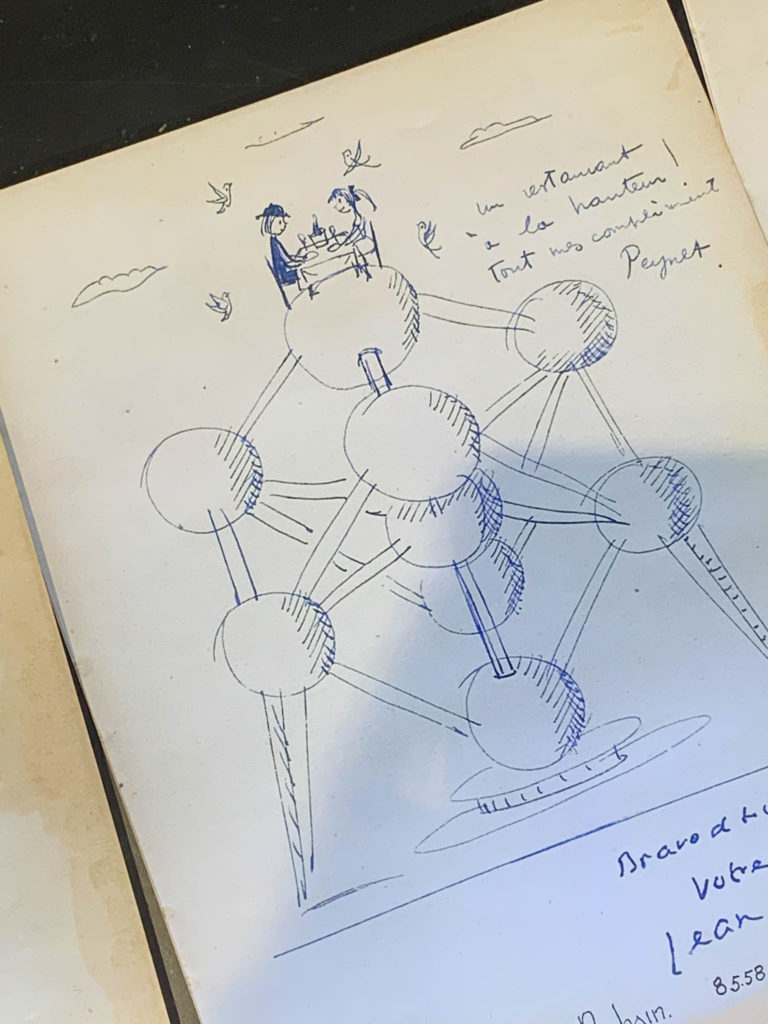 un restaurant
à la hauteur !
tout mes compliment
Peynet.
Bravo
Votre
Jean
8.5.58